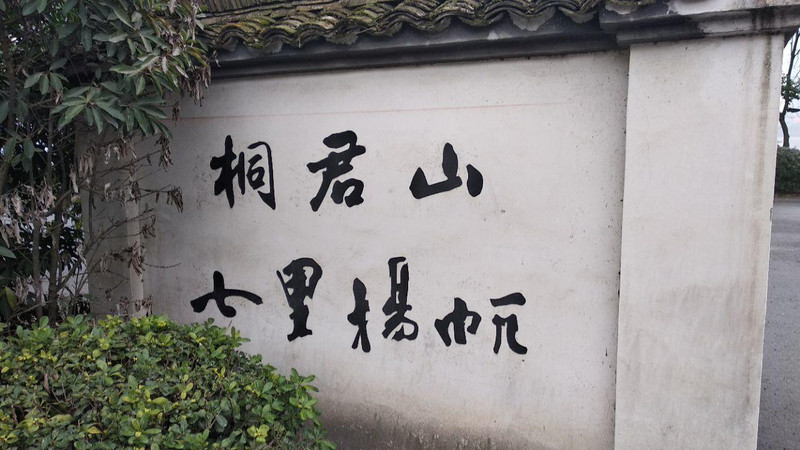 桐君山
七里揚帆